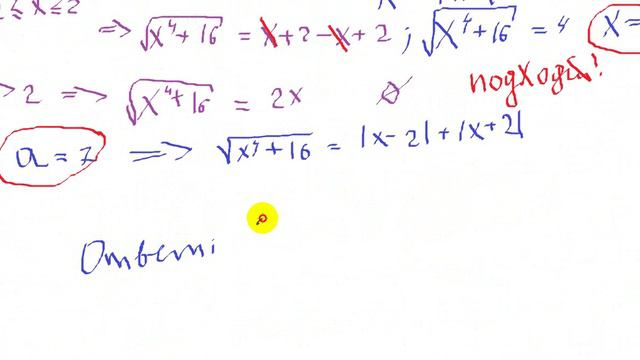 2 ≤ x ≤ 2
=> √(x⁴+16) = x+2-x+2 ; √(x⁴+16) = 4 x=
> 2 => √(x⁴+16) = 2x ∅ подходит!
a = 7 => √(x⁴+16) = |x-2|+|x+2|
Ответ: